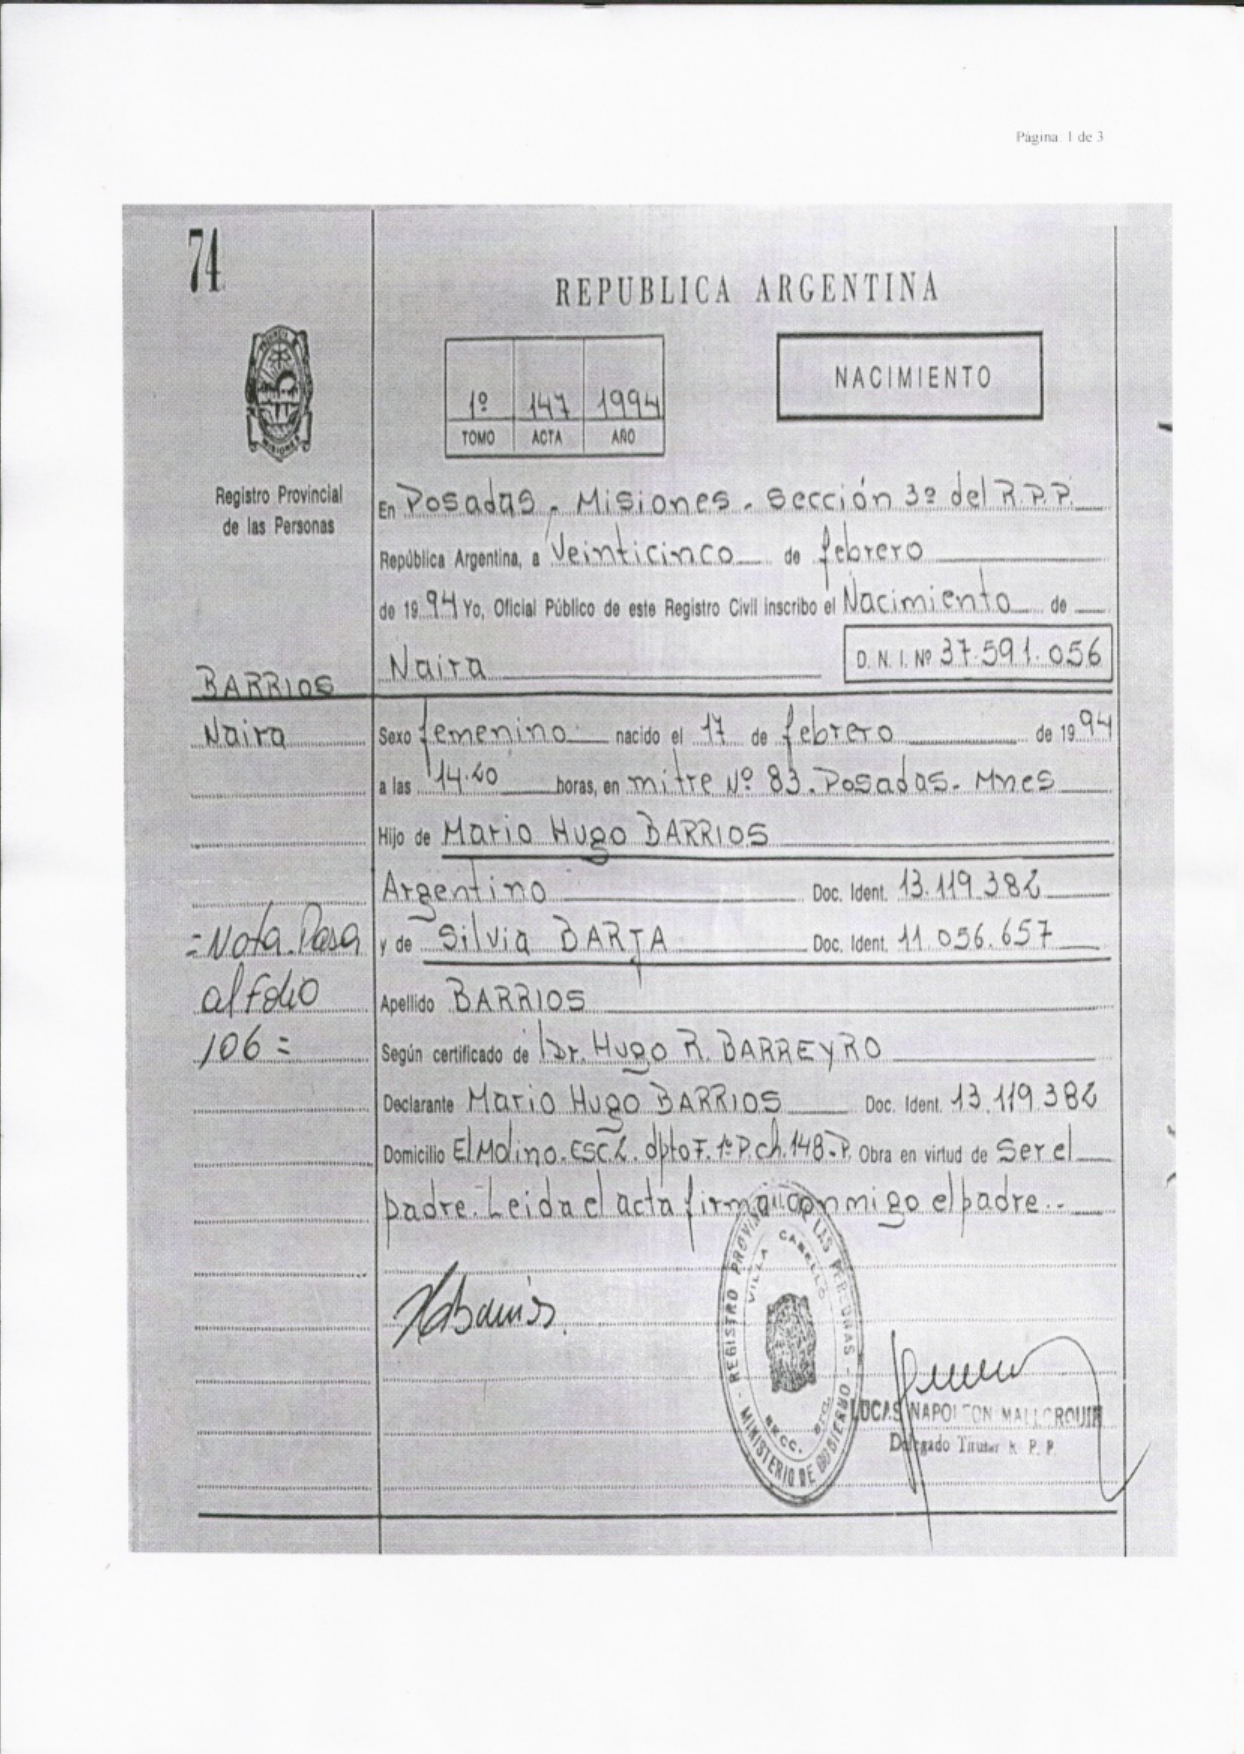 Página: 1 de 3
74
REPUBLICA ARGENTINA
NACIMIENTO
1º 147 1994
TOMO ACTA AÑO
MISIONES
Registro Provincial
de las Personas
En Posadas - Misiones - Sección 3º del R.P.P.
República Argentina, a Veinticinco de febrero
de 19 94 Yo, Oficial Público de este Registro Civil inscribo el Nacimiento de
Naira D. N. I. Nº 37.591.056
BARRIOS
Naira
Sexo femenino nacido el 17 de febrero de 19 94
a las 14.20 horas, en mitre Nº 83. Posadas - Mnes
Hijo de Mario Hugo BARRIOS
Argentino Doc. Ident. 13.119.382
y de Silvia BARJA Doc. Ident. 11.056.657
=Nota. Pasa
al Folio
106=
Apellido BARRIOS
Según certificado de Dr. Hugo R. BARREYRO
Declarante Mario Hugo BARRIOS Doc. Ident. 13.119.382
Domicilio El Molino. ESC2. dpto F. 1º P. ch. 148-P. Obra en virtud de Ser el
padre. Leida el acta firma conmigo el padre.-
REGISTRO PROVIN DE LAS PERSONAS
VILLA CABELLO
SECC.
MINISTERIO DE GOBIERNO
LUCAS NAPOLEON MALLORQUIN
Delegado Titular R. P. P.